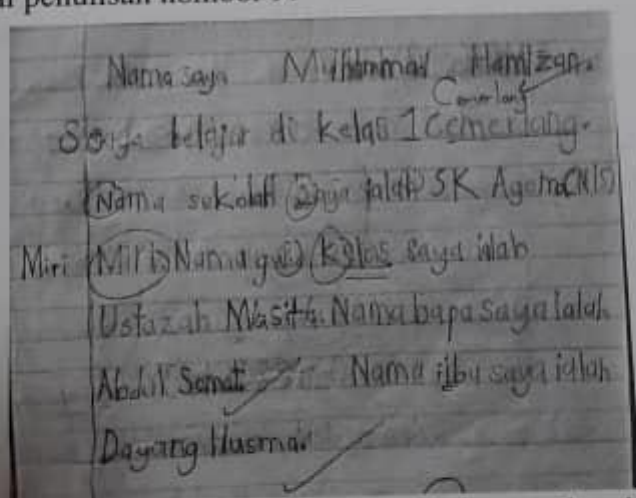 penulisan
Nama saya Muhammad Hamizan.
Cemerlang
Saya belajar di kelas 1 Cemerlang.
Nama sekolah saya ialah SK Agama (MIS)
Miri Miri Nama guru kelas saya ialah
Ustazah Masitah. Nama bapa saya ialah
Abdul Samat Nama ibu saya ialah
Dayang Husma.